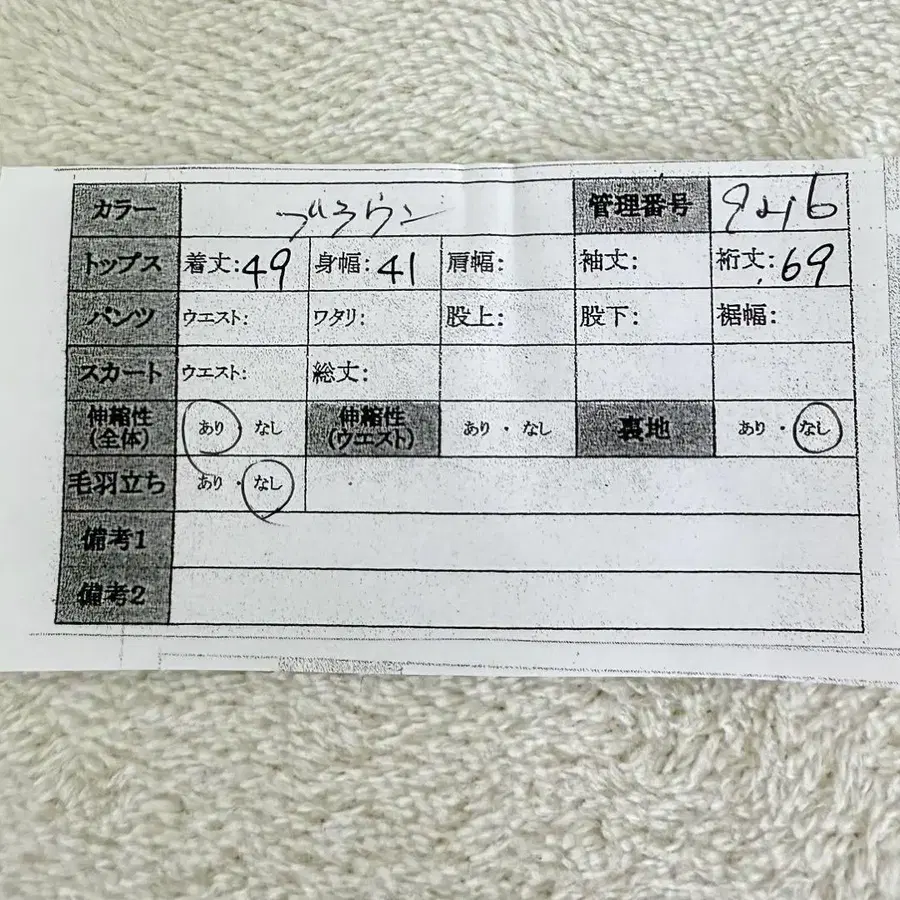 カラー ブラウン 管理番号
トップス 着丈:49 身幅:41 肩幅: 袖丈: 裄丈:69
パンツ ウエスト: ワタリ: 股上: 股下: 裾幅:
スカート ウエスト: 総丈:
伸縮性(全体) あり なし 伸縮性(ウエスト) あり・なし 裏地 あり・なし
毛羽立ち あり・なし
備考1
備考2